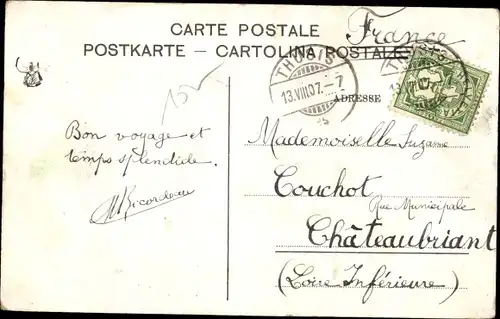 CARTE POSTALE
POSTKARTE – CARTOLINA POSTALE
France
THUSIS
13.VIII.07.–7
THUSIS
ADRESSE
Bon voyage et
temps splendide.
Mademoiselle Suzanne
Couchot
Rue Municipale
Châteaubriant
(Loire Inférieure)